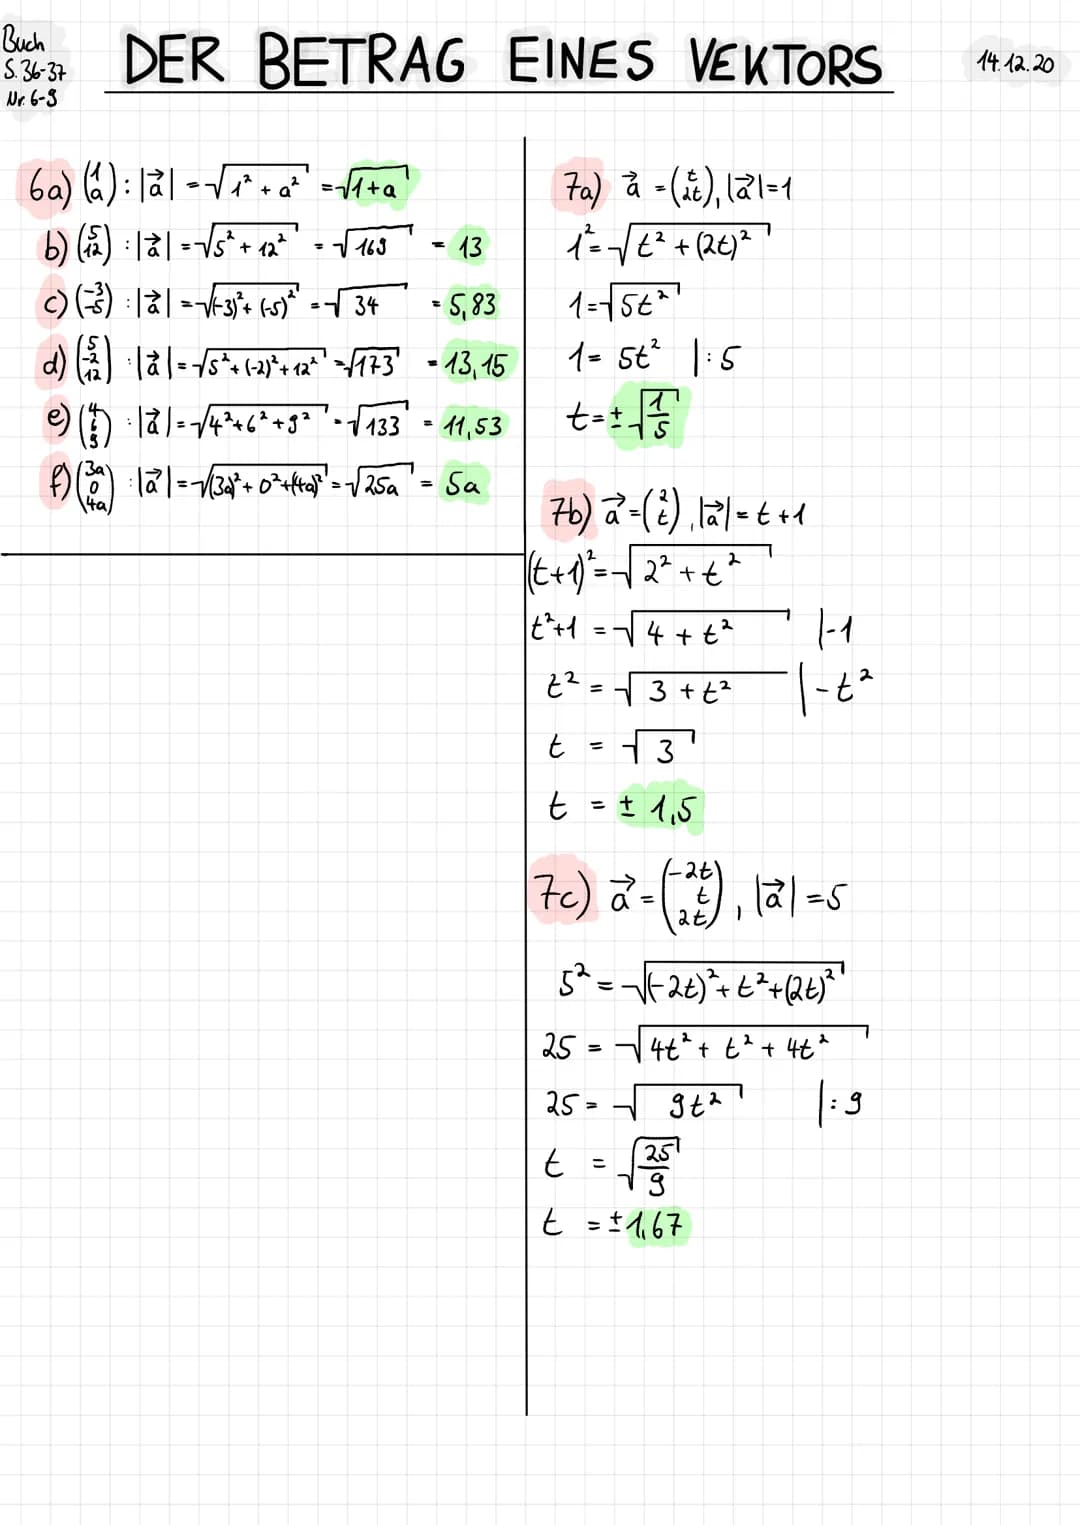 Buch
S. 36-37
Nr. 6-9
DER BETRAG EINES VEKTORS
14.12.20
6a) (1 a) : |a⃗| = √(1² + a²) = √(1+a)
b) (5 12) : |a⃗| = √(5² + 12²) = √169 = 13
c) (-3 -5) : |a⃗| = √((-3)² + (-5)²) = √34 = 5,83
d) (5 -2 12) : |a⃗| = √(5² + (-2)² + 12²) = √173 = 13,15
e) (4 6 9) : |a⃗| = √(4² + 6² + 9²) = √133 = 11,53
f) (3a 0 4a) : |a⃗| = √((3a)² + 0² + (4a)²) = √25a = 5a
7a) a⃗ = (t 2t), |a⃗| = 1
1² = √(t² + (2t)²)
1 = √5t²
1 = 5t² |:5
t = ± √(1/5)
7b) a⃗ = (2 t), |a⃗| = t + 1
(t+1)² = √(2² + t²)
t²+1 = √(4 + t²) |-1
t² = √(3 + t²) |-t²
t = √3
t = ± 1,5
7c) a⃗ = (-2t t 2t), |a⃗| = 5
5² = √((-2t)² + t² + (2t)²)
25 = √(4t² + t² + 4t²)
25 = √9t² |:9
t = √(25/9)
t = ± 1,67